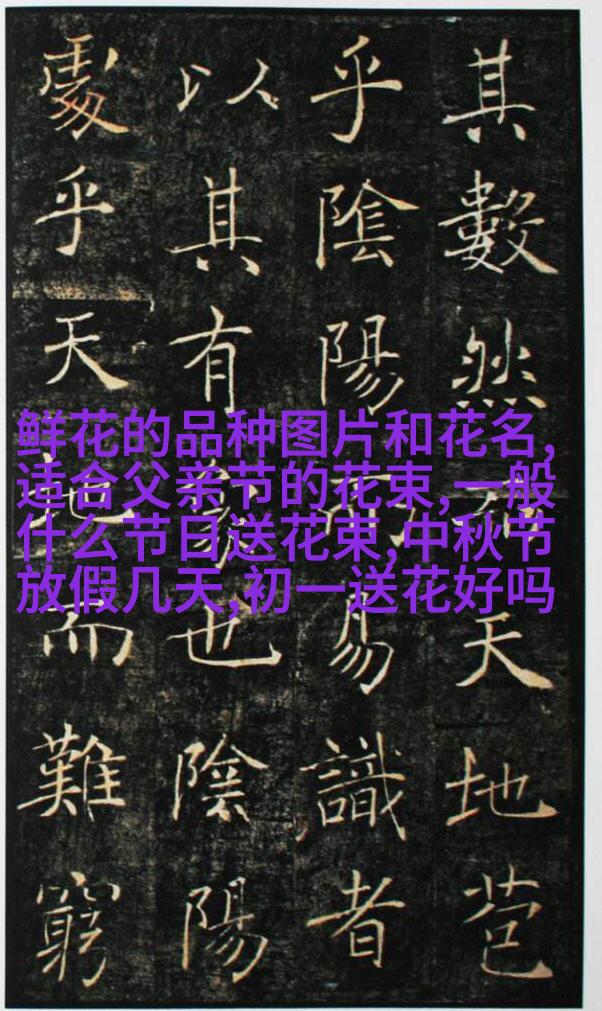 其數然而天地苞
乎陰陽而易識者
以其有象也陰陽
處乎天地而難窮
鲜花的品种图片和花名,
适合父亲节的花束,一般
什么节日送花束,中秋节
放假几天,初一送花好吗